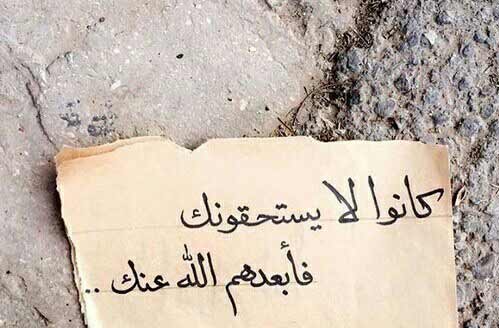 كانوا لا يستحقونك
فأبعدهم الله عنك ..